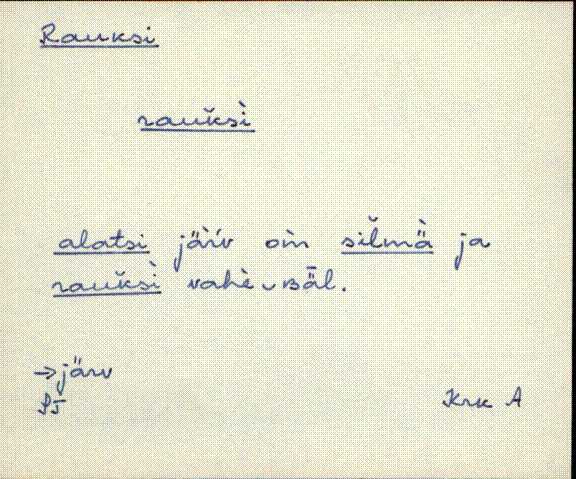 Rauksi
rauk̆sì̬
alatsi järv om silmä ja
rauk̆sì vahè‿ʙäl.
→järv
Krk A